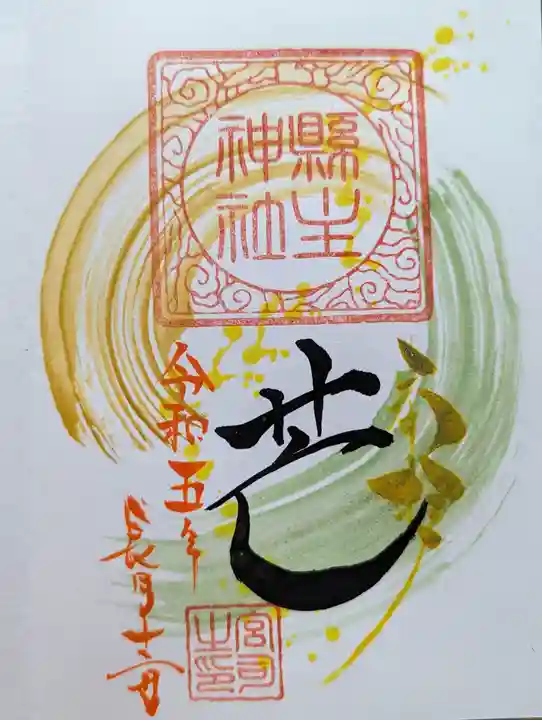 縣主
神社
芒
令和五年
長月十二日
宮司
之印